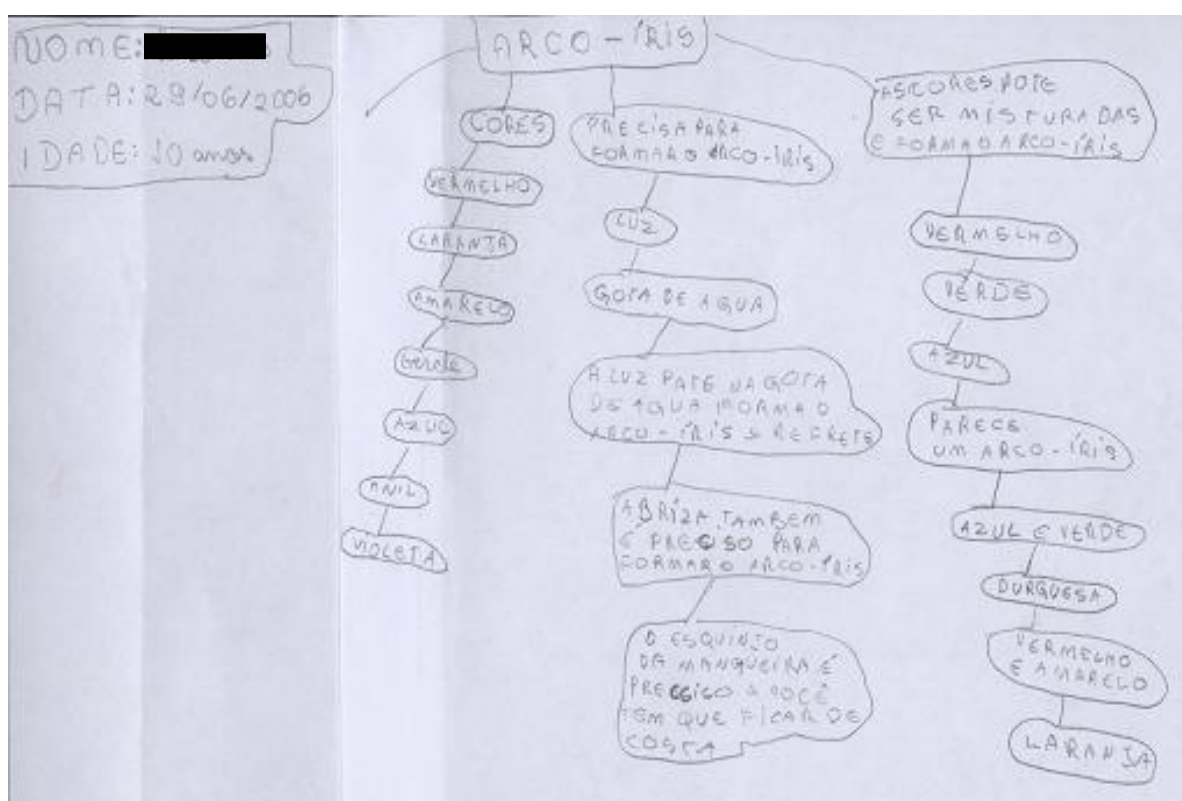 NOME:
DATA: 29/06/2006
IDADE: 10 anos
ARCO-ÍRIS
CORES
VERMELHO
LARANJA
AMARELO
Verde
AZUL
ANIL
VIOLETA
PRECISA PARA
FORMAR O ARCO-ÍRIS
LUZ
GOTA DE AGUA
A LUZ PATE NA GOTA
DE AGUA FORMA O
ARCO-ÍRIS E REFRETE
A BRIZA TAMBEM
É PRECISO PARA
FORMAR O ARCO-ÍRIS
O ESQUINJO
DA MANGUEIRA É
VOCÊ
TEM QUE FICAR DE
COSTA
AS CORES POTE
SER MISTURADAS
E FORMA O ARCO-ÍRIS
VERMELHO
VERDE
AZUL
PARECE
UM ARCO-ÍRIS
AZUL E VERDE
DURQUESA
VERMELHO
E AMARELO
LARANJA